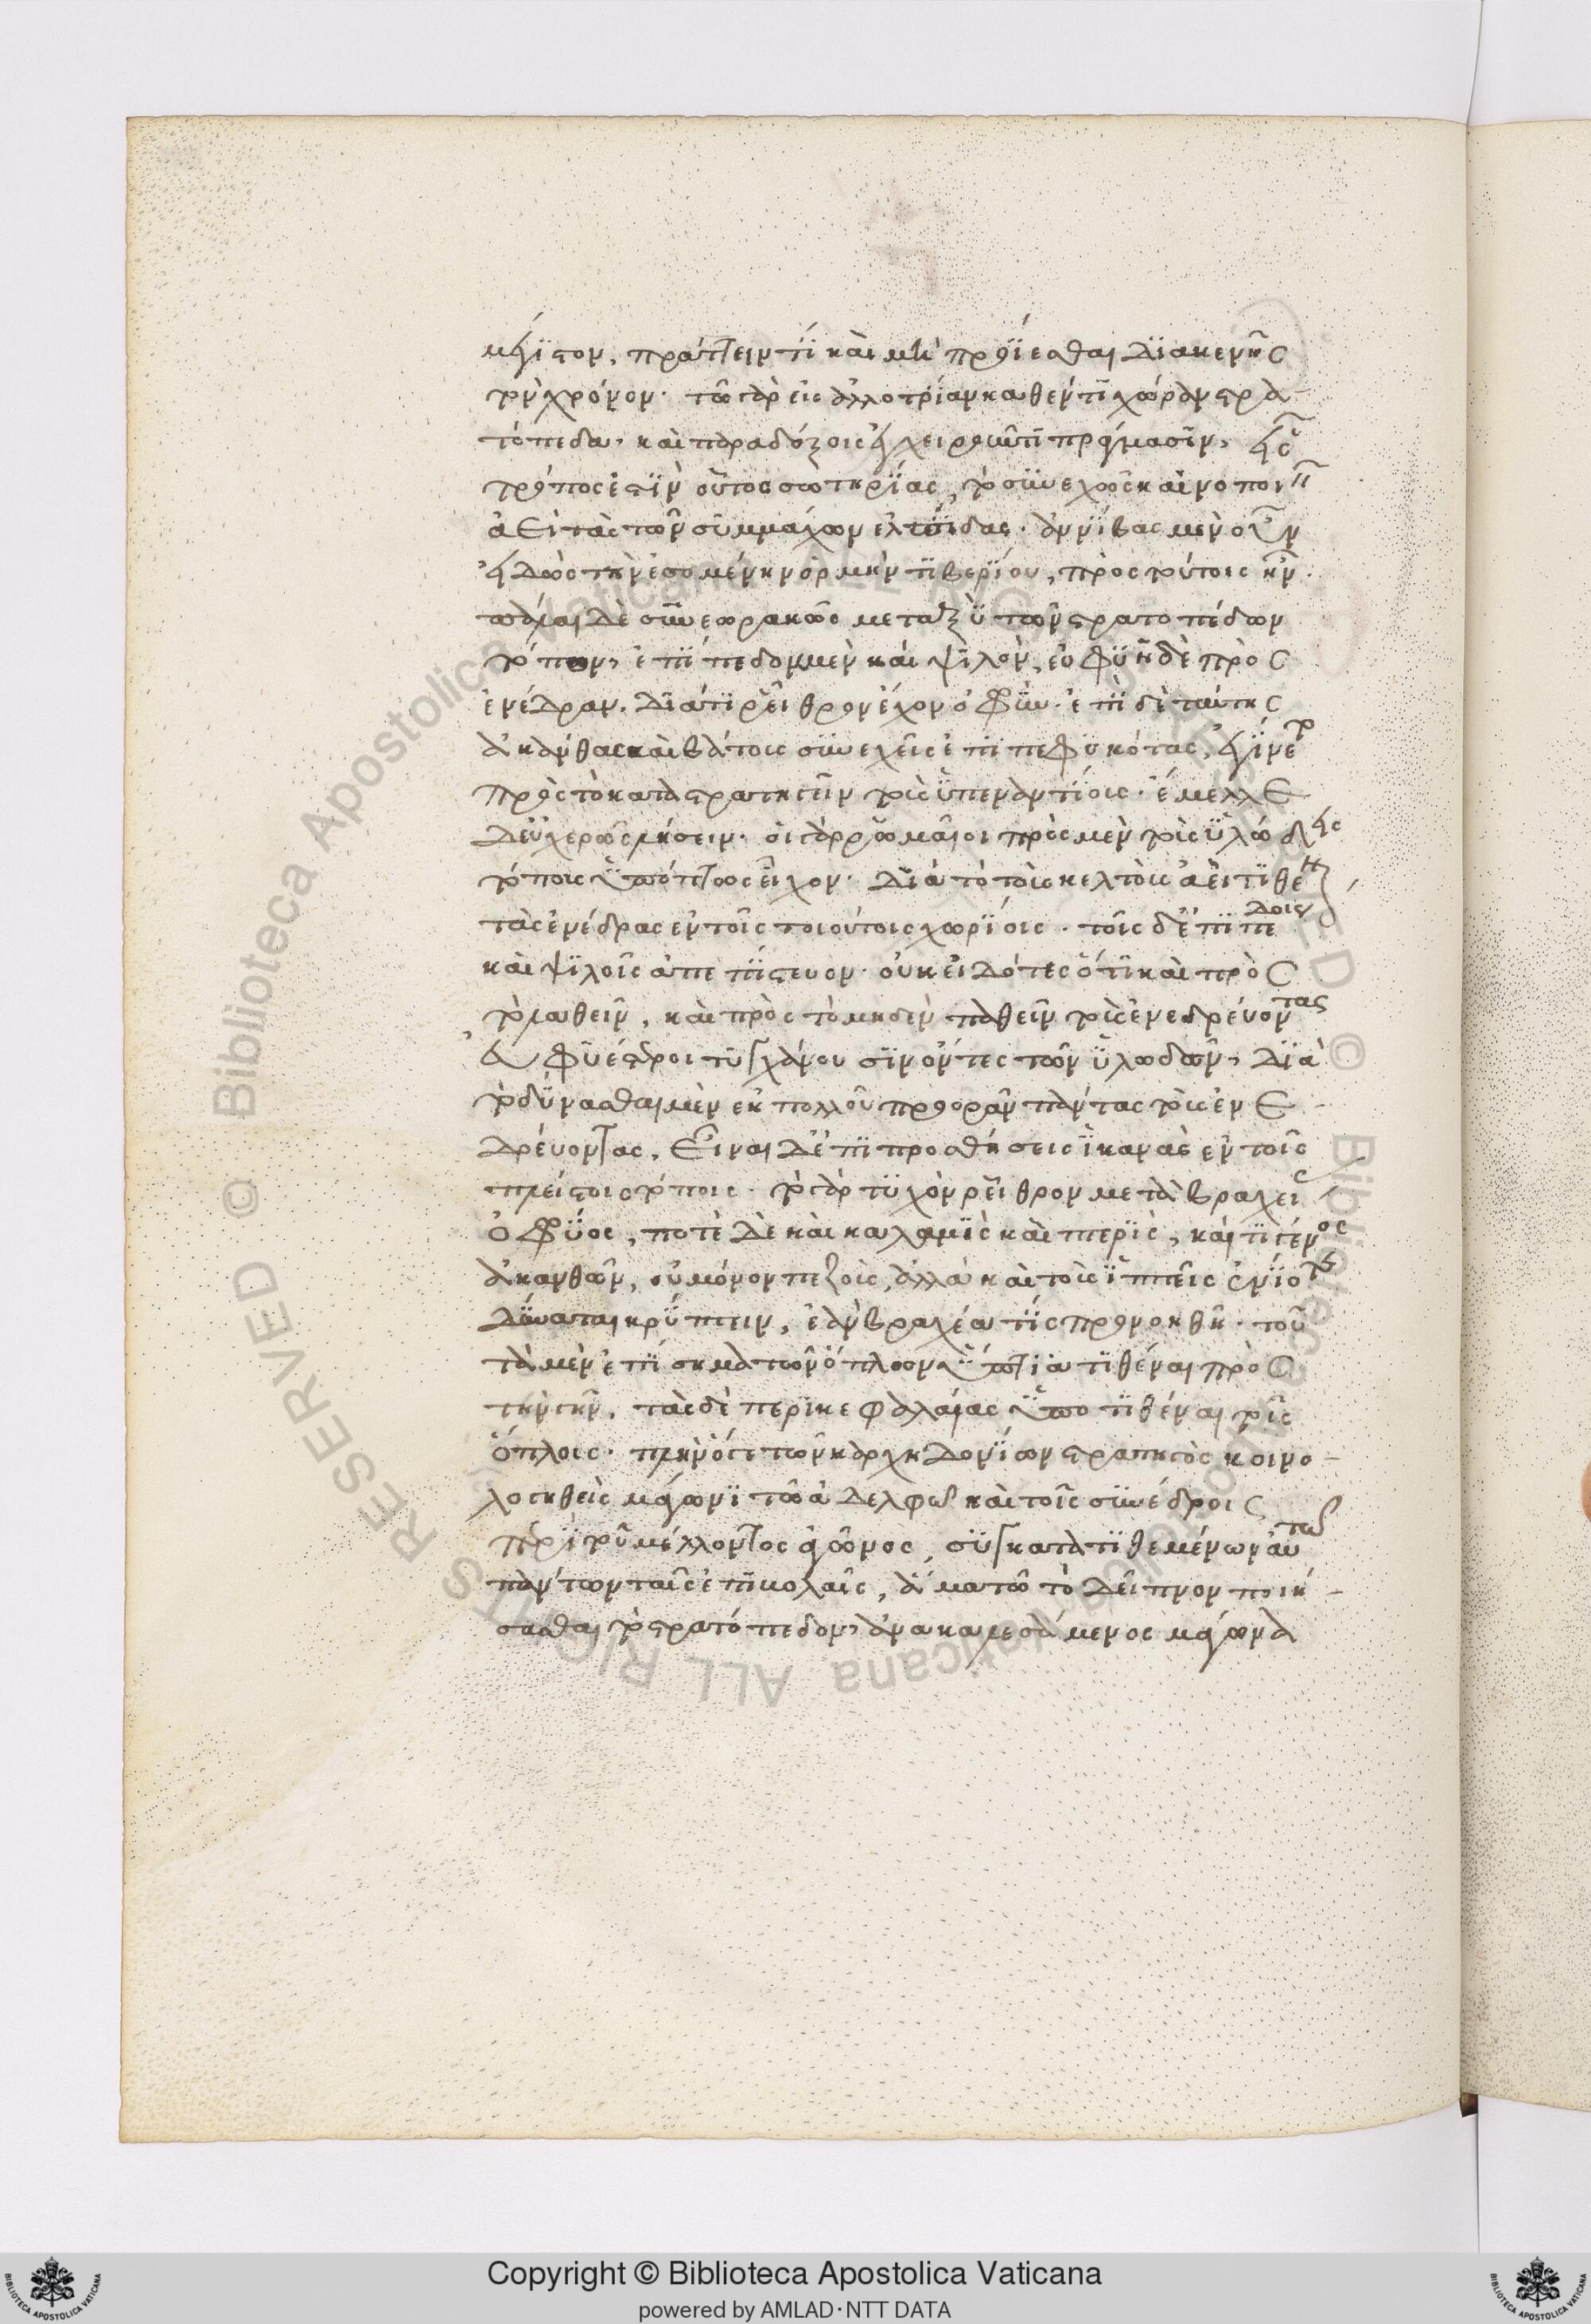 μέγιστον, πράττειν τί καὶ μὴ προΐεσθαι διακενῆς
τὸν χρόνον. τῶ γὰρ εἰς ἀλλοτρίαν καθέντι χώραν στρα
τόπεδα. καὶ παραδόξοις ἐγχειροῦντι πράγμασιν, εἷς
τρόπος ἐστὶν οὗτος σωτηρίας, τὸ συνεχῶς καινοποιεῖν
ἀεὶ τὰς τῶν συμμάχων ἐλπίδας. ἀννίβας μὲν οὖν
εἰδὼς τὴν ἐσομένην ὁρμὴν τιβερίου, πρὸς τούτοις ἦν.
πάλαι δὲ συνεωρακὼς μεταξὺ τῶν στρατοπέδων
τόπον, ἐπίπεδον μὲν καὶ ψιλὸν, εὐφυῆ δὲ πρὸς
ἐνέδραν. διά τι ῥεῖθρον ἔχον ὀφρὺν. ἐπὶ δὲ ταύτης
ἀκάνθας καὶ βάτους συνεχεῖς ἐπιπεφυκότας, ἐγίνετο
πρὸς τὸ καταστρατηγεῖν τοὺς ὑπεναντίους. ἔμελλε
δ' εὐχερῶς λήσειν. οἱ γὰρ ῥωμαῖοι πρὸς μὲν τοὺς ὑλώδεις
τόπους ὑπόπτως εἶχον. διὰ τὸ τοὺς κελτοὺς ἀεὶ τιθέναι
τὰς ἐνέδρας ἐν τοῖς τοιούτοις χωρίοις. τοῖς δ' ἐπιπέδοις
καὶ ψιλοῖς ἀπεπίστευον. οὐκ εἰδότες ὅτι καὶ πρὸς
τὸ λαθεῖν, καὶ πρὸς τὸ μηδὲν παθεῖν τοὺς ἐνεδρεύοντας
ἀφυέστεροι τυγχάνουσιν ὄντες τῶν ὑλωδῶν, διὰ
τὸ δύνασθαι μὲν ἐκ πολλοῦ προορᾶν πάντας τοὺς ἐνε
δρεύοντας, εἶναι δ' ἐπιπροσθήσεις ἱκανὰς ἐν τοῖς
πλείστοις τόποις. τὸ γὰρ τυχὸν ῥεῖθρον μετὰ βραχείας
ὀφρύος, ποτὲ δὲ καὶ καλαμὶς καὶ πτερὶς, καί τι γένος
ἀκανθῶν, οὐ μόνον πεζοὺς, ἀλλὰ καὶ τοὺς ἱππεῖς ἐνίοτε
δύναται κρύπτειν, ἐὰν βραχέα τίς προνοηθῆ. τοῦ
τὰ μὲν ἐπίσημα τῶν ὅπλων ὕπτια τιθέναι πρὸς
τὴν γῆν, τὰς δὲ περικεφαλαίας ὑποτιθέναι τοῖς
ὅπλοις. πλὴν ὅ γε τῶν καρχηδονίων στρατηγὸς κοινο
λογηθεὶς μάγωνι τῶ ἀδελφῶ καὶ τοῖς συνέδροις
περὶ τοῦ μέλλοντος ἀγῶνος, συγκατατιθεμένων αὐτῶ
πάντων ταῖς ἐπιβολαῖς, ἅμα τῶ τὸ δεῖπνον ποιή
σασθαι τὸ στρατόπεδον, ἀνακαλεσάμενος μάγωνα